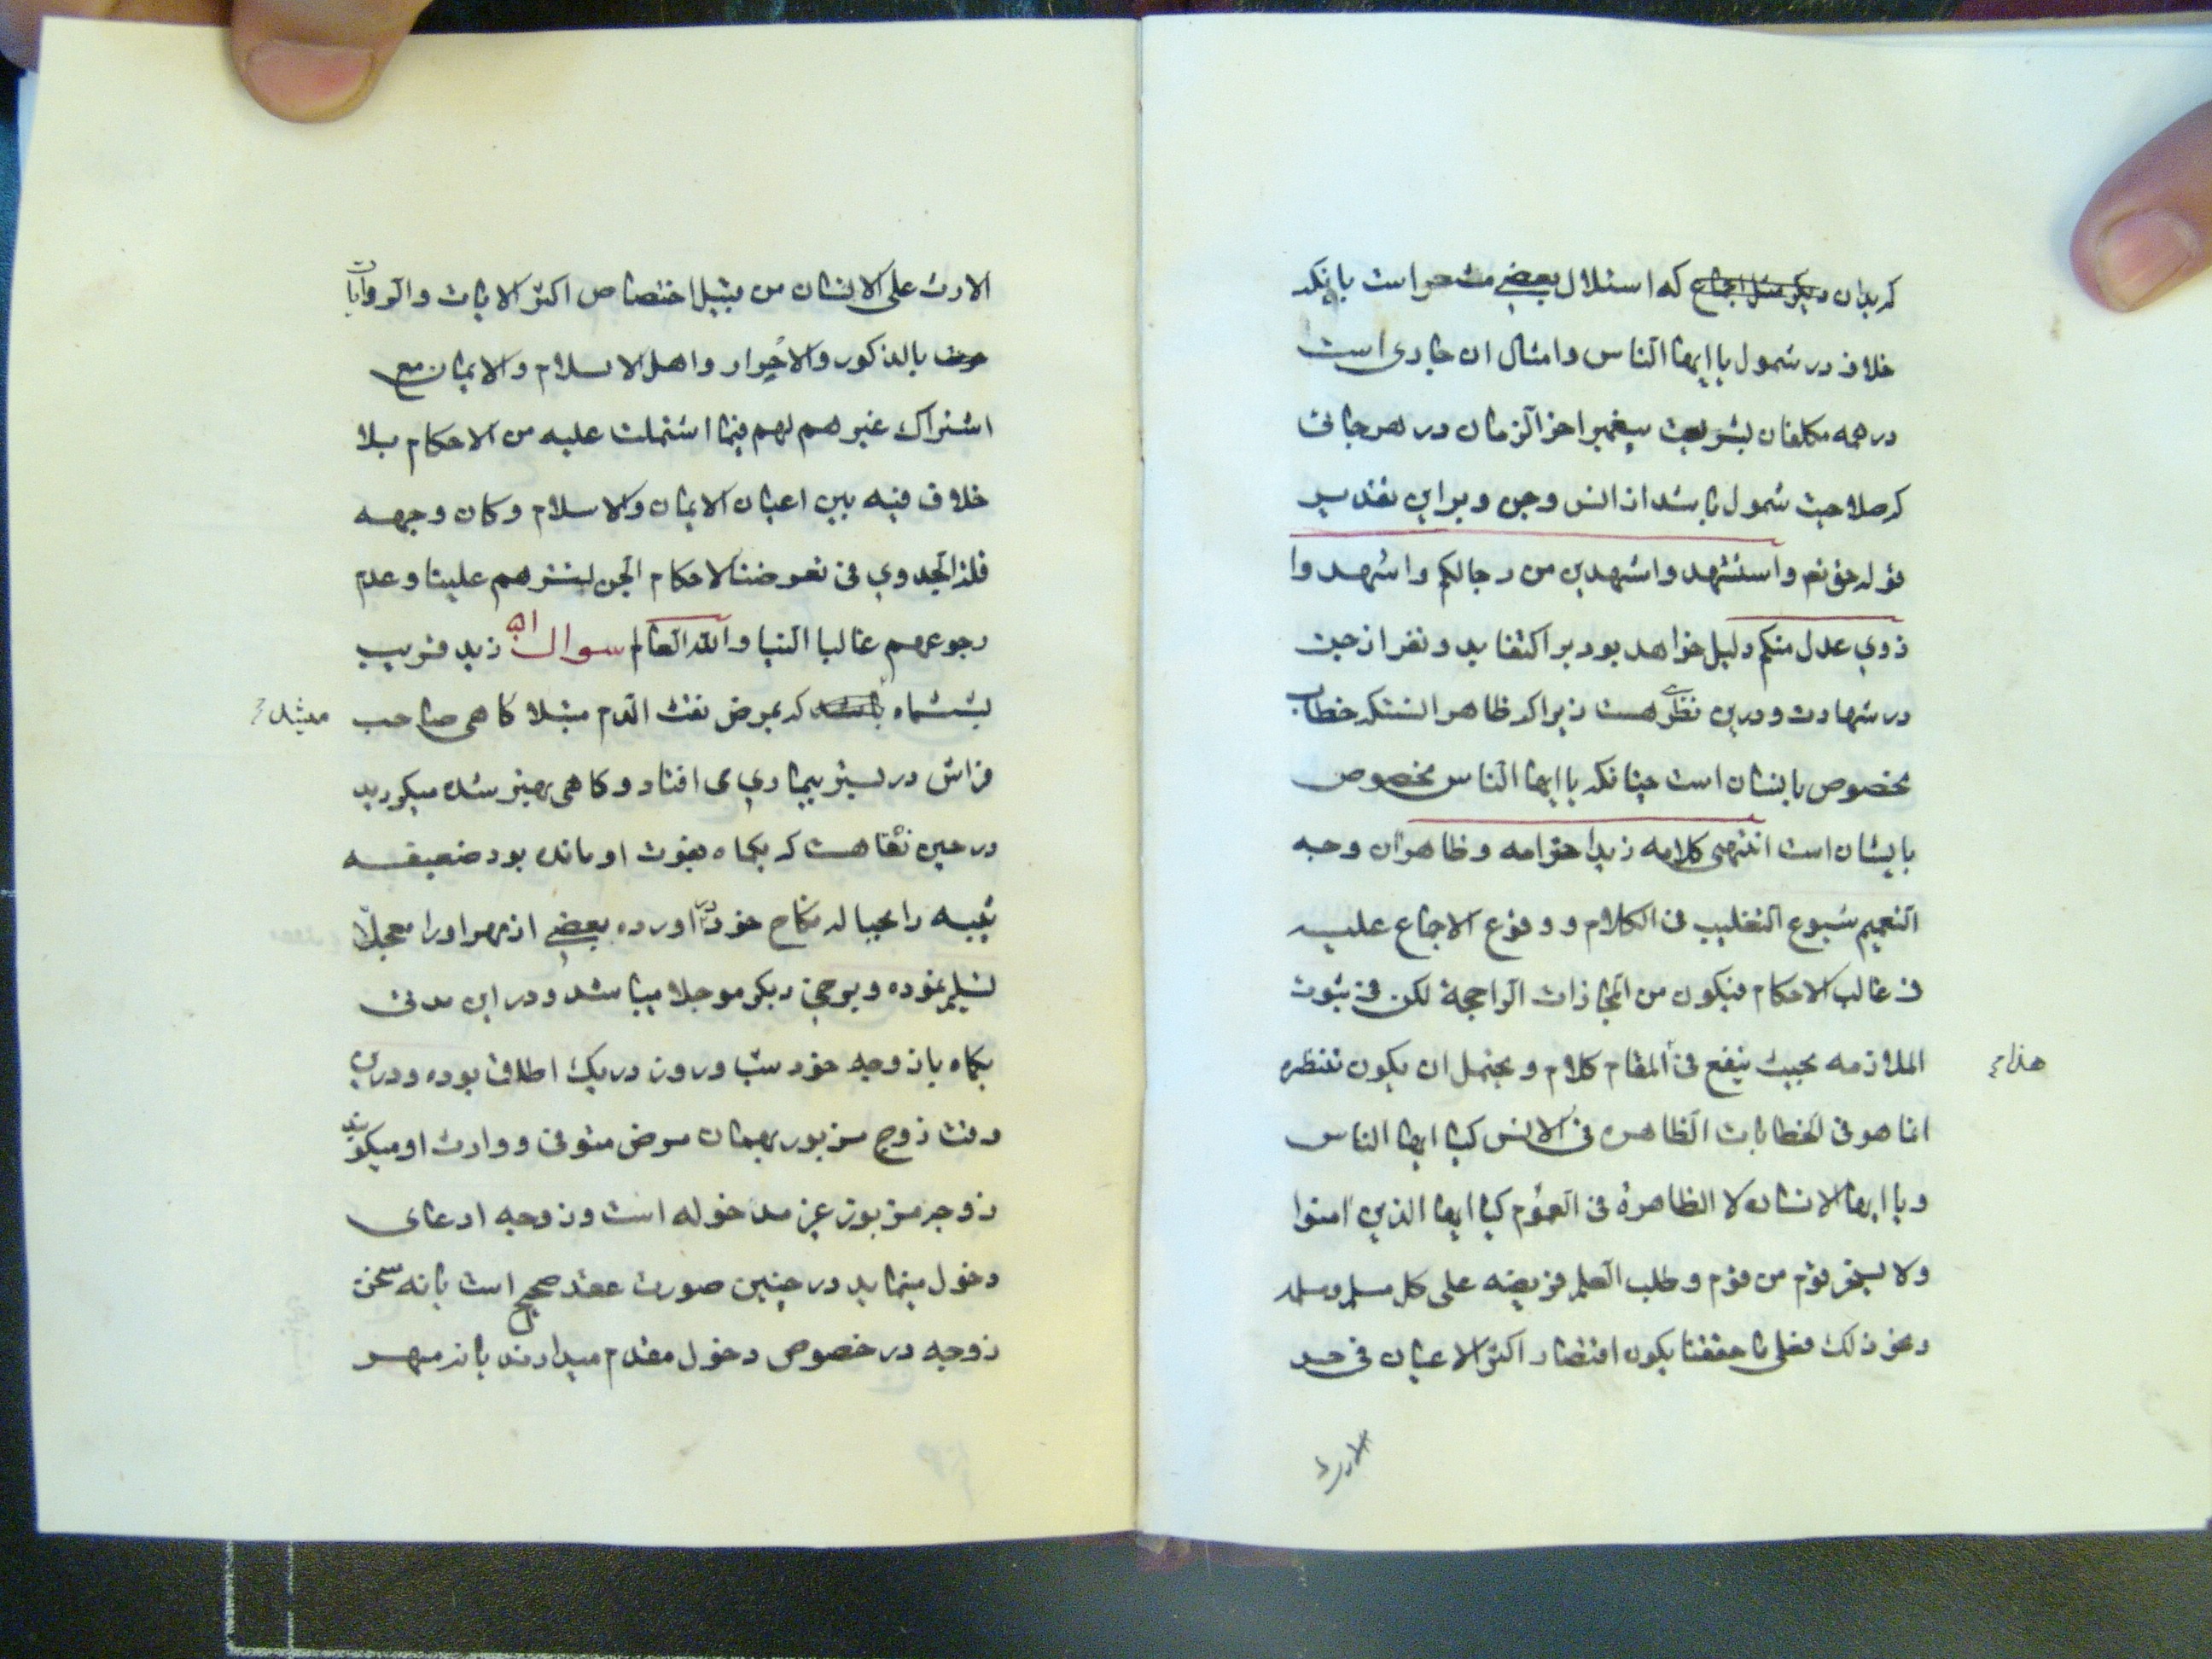 که بدان دیگر مثل اجماع که استدلال بعضی مشعر است بانکه
خلاف در شمول یا ایها الناس و امثال ان جاری است
در همه مکلفان بشریعت پیغمبر اخر الزمان در هر جائی
که صلاحیت شمول باشد از انس و جن و براین تقدیر
قوله حق تعم و استشهدوا شهیدین من رجالکم و اشهدوا
ذوی عدل منکم دلیل خواهد بود بر اکتفا بدو نفر از جن
در شهادت و درین نظری هست زیرا که ظاهر انستکه خطاب
مخصوص بانسان است چنانکه یا ایها الناس مخصوص
بایشان است انتهی کلامه زید احترامه و ظاهران وجه
التعمیم شیوع التغلیب فی الکلام و وقوع الاجماع علیه
فی غالب الاحکام فیکون من المجازات الراجحة لکن فی ثبوت
الملازمه بحیث ینفع فی المقام کلام و یحتمل ان یکون تنظره هذا
انما هو فی الخطابات الظاهره فی الانس کیا ایها الناس
و یا ایها الانسان لا الظاهرة فی العموم کیا ایها الذین امنوا
ولا یسخر قوم من قوم و طلب العلم فریضه علی کل مسلم و مسلمه
و نحو ذلک فعلی ما حققنا یکون اقتصار اکثر الاعیان فی حد
الارث
الارث علی الانسان من قبیل اختصاص اکثر الایات و الروایات
بالذکور و الاحرار و اهل الاسلام و الایمان مع
اشتراک غیرهم لهم فیما اشتملت علیه من الاحکام بلا
خلاف فیه بین اعیان الایمان و الاسلام و کان وجهه
قلة الجدوی فی تعرضنا لاحکام الجن لتسترهم علینا و عدم
رجوعهم غالبا الینا والله العالم سوال زید قریب
بششماه باشد که بمرض نفث الدم مبتلا کاهی صاحب میشد
فراش در بستر بیماری می افتاد و کاهی بهتر شده میکردید
در حین نقاهت که یکماه بفوت او مانده بود ضعیفه
ثیبه را بحباله نکاح خود در اورده بعضی از مهر او را معجلا
تسلیم نموده و برخی دیکر موجلا میباشد و در این مدت
یکماه با زوجه خود شب و روز در یک اطاق بوده و درین
وقت زوج مزبور بهمان مرض متوفی و وارث او میکوید
زوجه مزبور غیر مدخوله است و زوجه ادعای
دخول مینماید در چنین صورت عقد صحیح است یا نه سخن
زوجه در خصوص دخول مقدم میدارند یا نه مهر